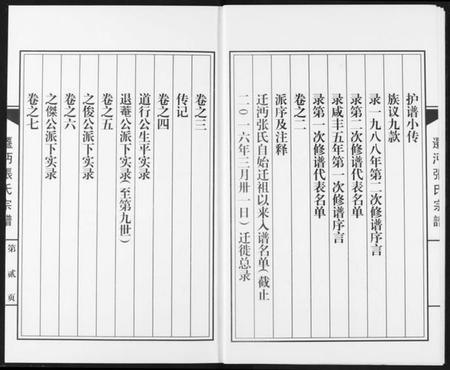 護谱小传
族议九款
录一九八八年第二次修谱序言
录第二次修谱代表名单
录咸丰五年第一次修谱序言
录第一次修谱代表名单
卷之二
派序及注释
迁沔张氏自始迁祖以来入谱名单（截止
二〇一六年三月卅一日）迁徙总录
卷之三
传记
卷之四
道行公生平实录
退菴公派下实录（至第九世）
卷之五
之俊公派下实录
卷之六
之傑公派下实录
卷之七
遷沔張氏宗譜
第貳页
遷沔張氏宗譜